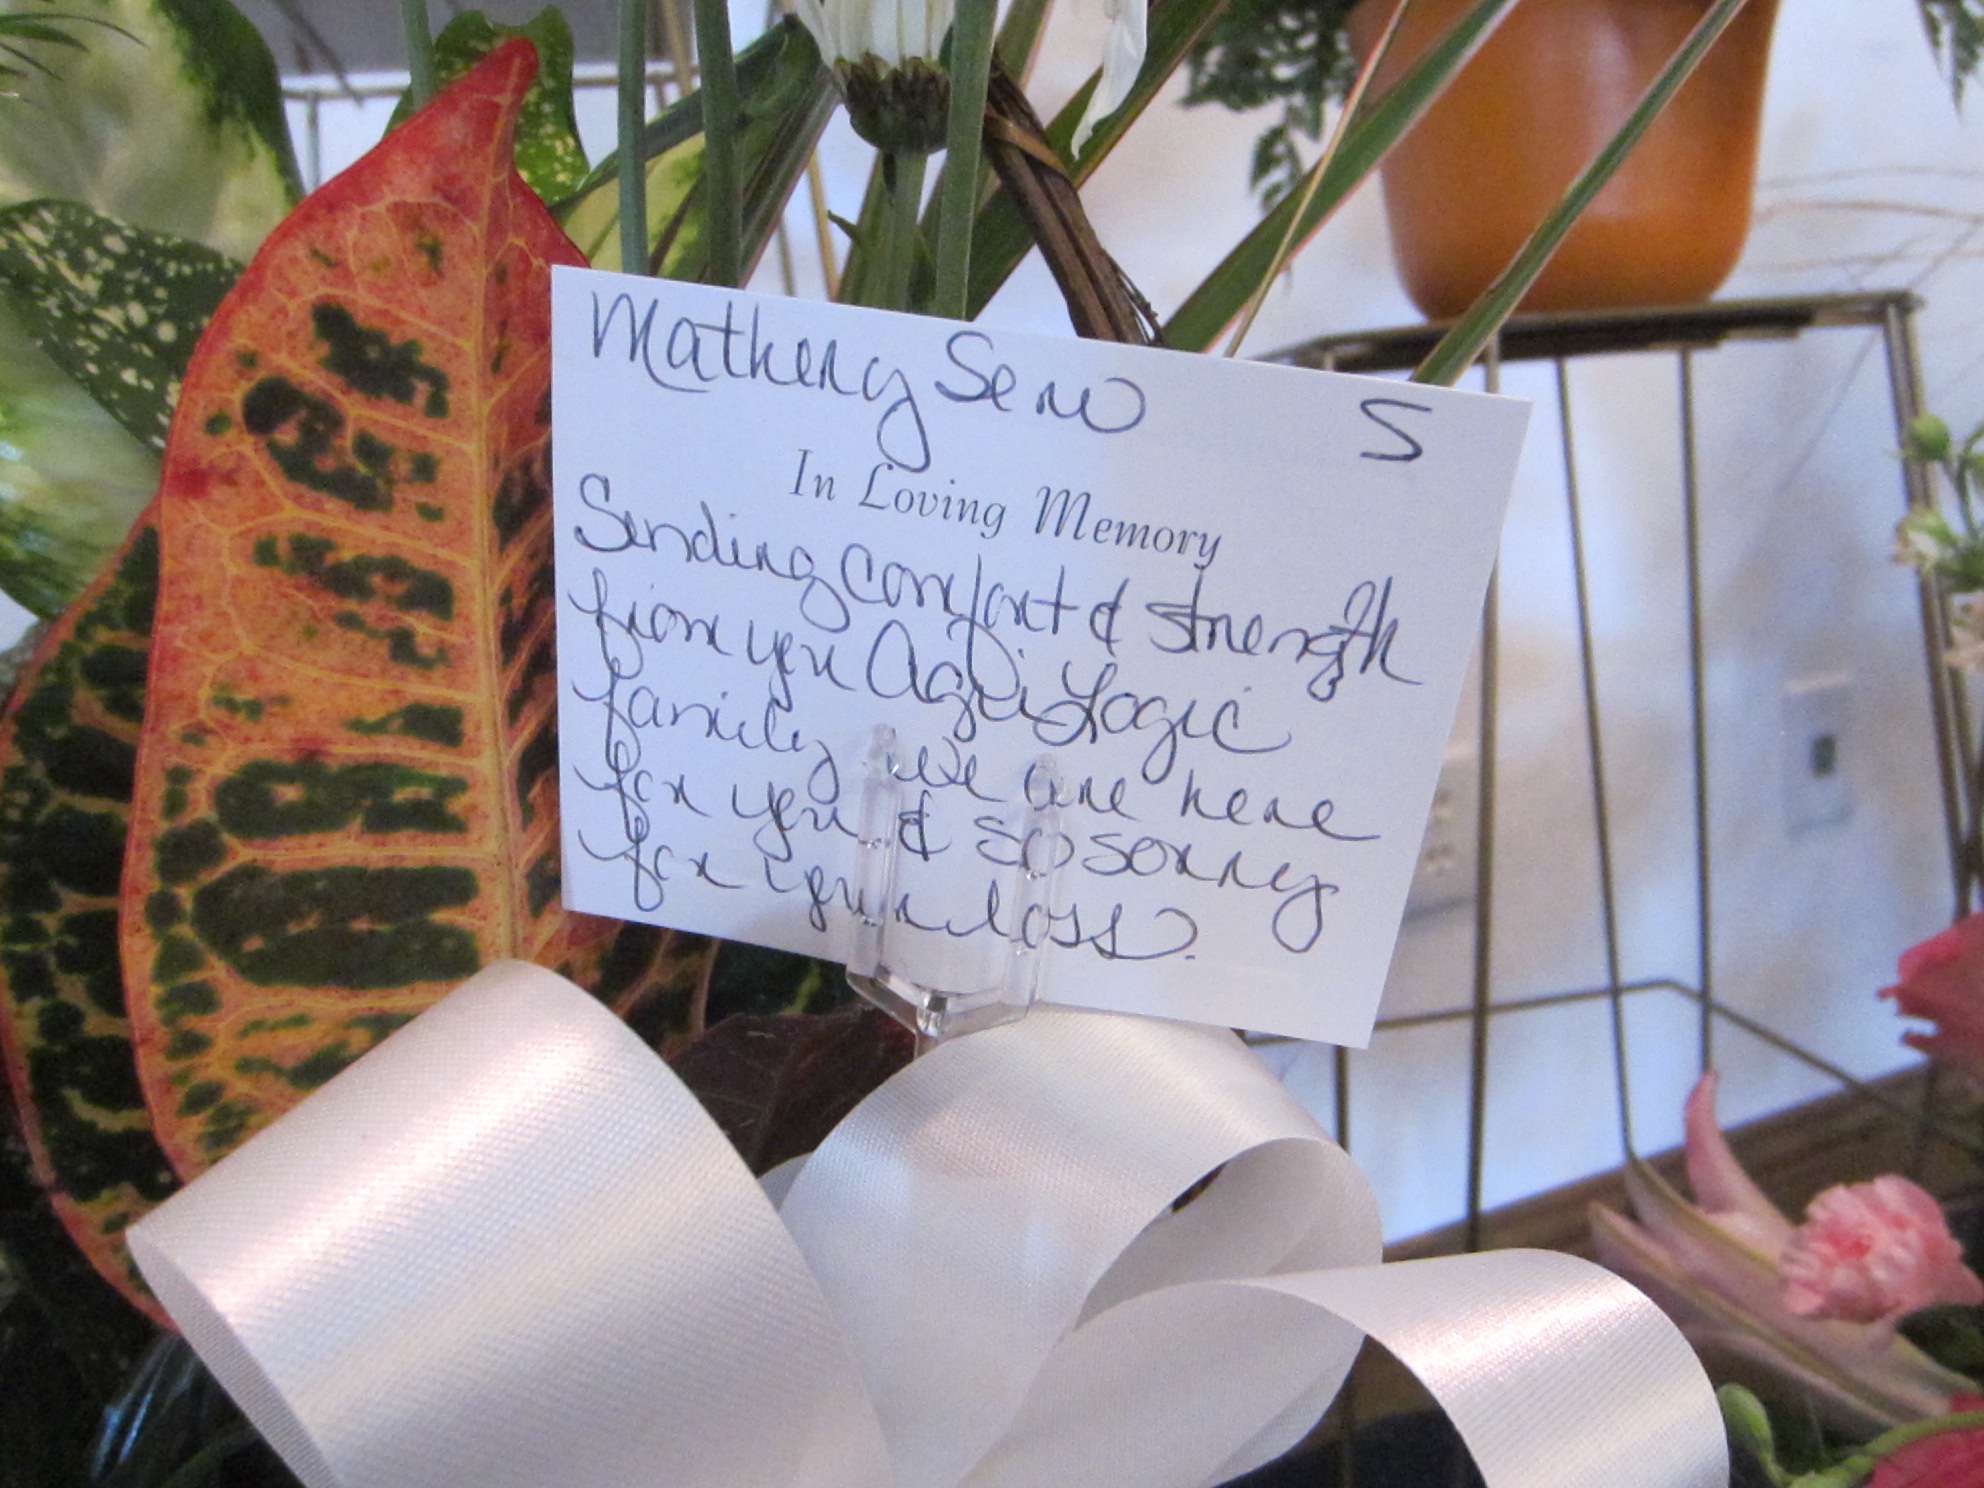 Matheny Serv S
In Loving Memory
Sending comfort & strength
from your AgriLogic
family we are here
for you & so sorry
for your loss.